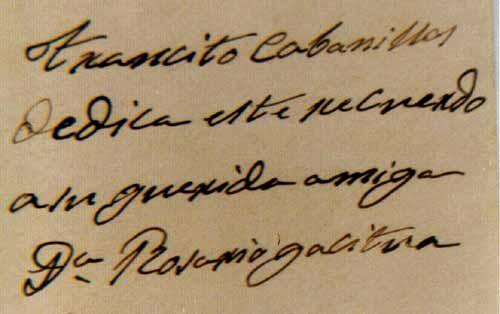 Trancito Cabanillas
dedica este recuerdo
a su querida amiga
Da Rosario gacitua